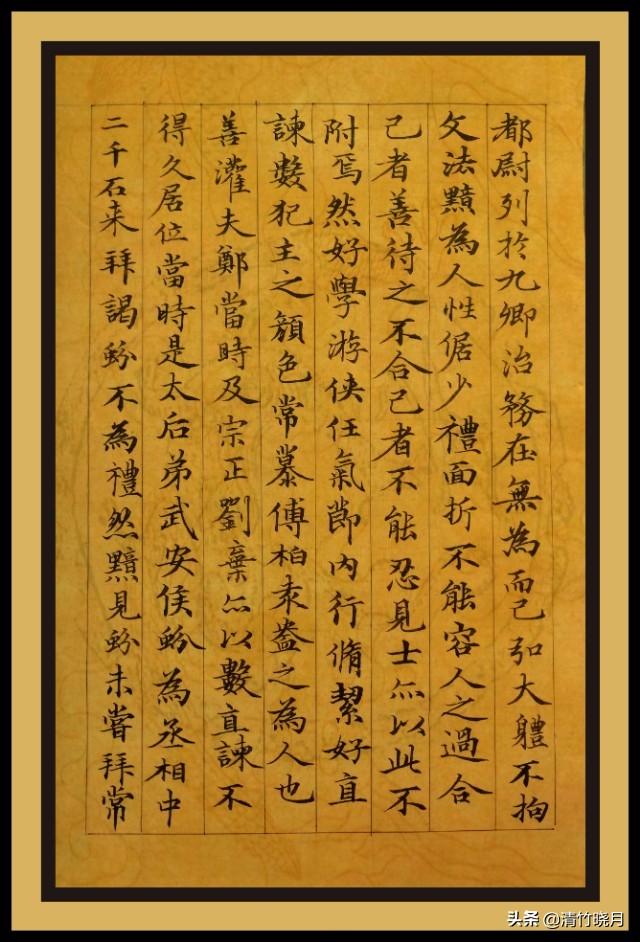 都尉列於九卿治務在無為而已弘大軆不拘
文法黯為人性倨少禮面折不能容人之過合
己者善待之不合己者不能忍見士亦以此不
附焉然好學游俠任氣節內行脩絜好直
諫數犯主之顏色常慕傅柏袁盎之為人也
善灌夫鄭當時及宗正劉棄亦以數直諫不
得久居位當時是太后弟武安侯蚡為丞相中
二千石来拜謁蚡不為禮然黯見蚡未嘗拜常
头条 @清竹晓月